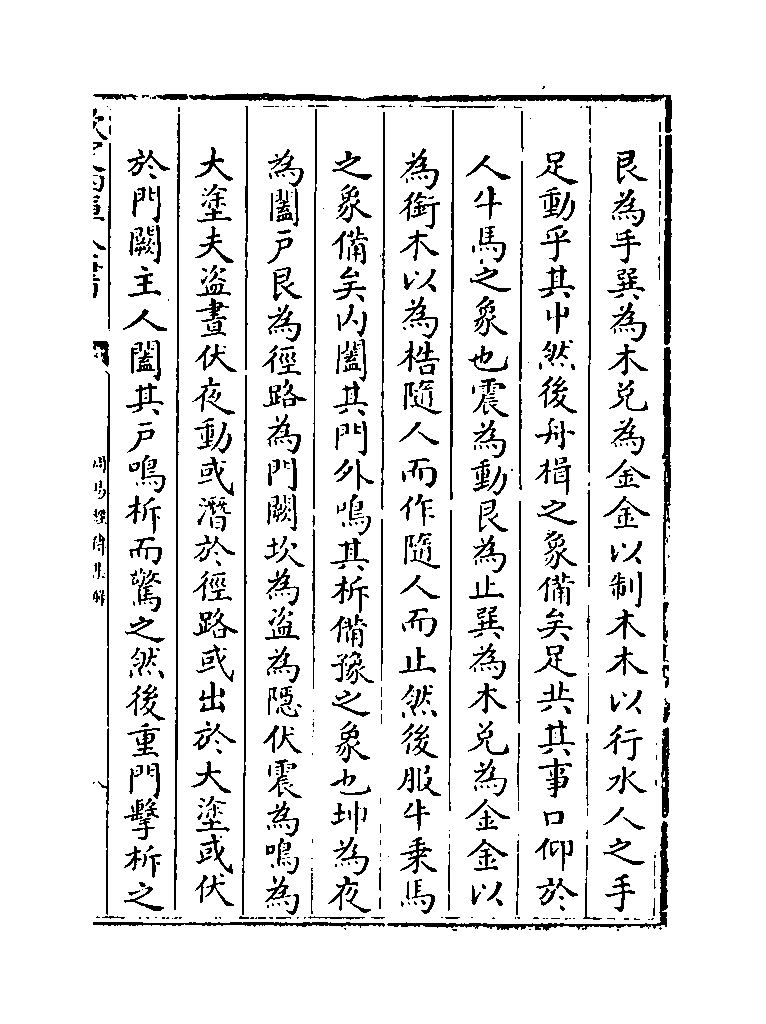 艮為手巽為木兑為金金以制木木以行水人之手
足動乎其中然後舟楫之象備矣足共其事口仰於
人牛馬之象也震為動艮為止巽為木兑為金金以
為銜木以為梏隨人而作隨人而止然後服牛乗馬
之象備矣内闔其門外鳴其柝備豫之象也坤為夜
為闔戸艮為徑路為門闕坎為盗為隱伏震為鳴為
大塗夫盗晝伏夜動或潛於徑路或出於大塗或伏
於門闕主人闔其戸鳴柝而驚之然後重門擊柝之
欽定四庫全書
周易經傳集解